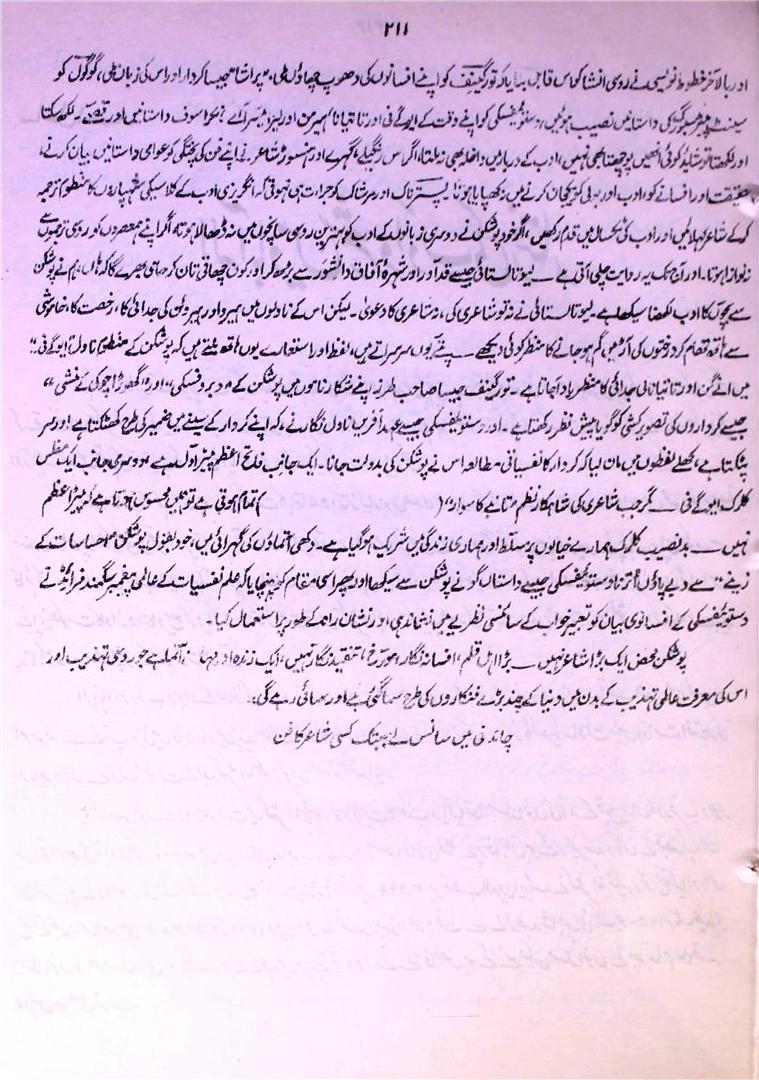 ۲۱۱
اور بالآخر خطوط نویسی نے روسی انشا کو اس قابل بنایا کہ تورگینف کو اپنے افسانوں کی دھوپ چھاؤں ملی، پیراشا جیسا کردار اور اس کی زبان ملی، گوگول کو
سینٹ پیٹرسبرگ کی داستانیں نصیب ہوئیں، دستوئیفسکی کو اپنے وقت کے ایوگے نی اور تاتیانا، ہیرمن اور لیزا میسر آئے؛ چخوف داستانیں اور قصے۔ لکھ سکتا
اور لکھتا تو شاید کوئی انھیں پوچھتا بھی نہیں، ادب کے دربار میں داخلہ بھی نہ ملتا، اگر اس رنگیلے، گہرے اور ہنسوڑ شاعر نے اپنے فن کی پختگی کو عوامی داستانیں بیان کرنے،
حقیقت اور افسانے کو، ادب اور بے ادبی کو یکجان کرنے میں نہ کھپایا ہوتا۔ پسترناک اور مرشاک کو جرات ہی نہ ہوتی کہ انگریزی ادب کے کلاسیکی شہپاروں کا منظوم ترجمہ
کر کے شاعر کہلائیں اور ادب کی ٹکسال میں قدم رکھیں، اگر خود پوشکن نے دوسری زبانوں کے ادب کو بہترین روسی سانچوں میں نہ ڈھالا ہوتا، اگر اپنے ہمعصروں کو روسی ترجموں سے
نہ نوازا ہوتا۔ اور آج تک یہ روایت چلی آتی ہے ــ لیوتالستائی جیسے قد آور اور شہرۂ آفاق دانشور سے بڑھ کر اور کون چھاتی تان کر حامی بھرے گا کہ ہاں، ہم نے پوشکن
سے بچوں کا ادب لکھنا سیکھا ہے۔ لیوتالستائی نے نہ تو شاعری کی، نہ شاعری کا دعویٰ۔ لیکن اس کے ناولوں میں ہیرو اور ہیروئن کی جدائی کا، رخصت کا، خاموشی
سے ہاتھ تھام کر درختوں کی آڑ میں گم ہو جانے کا منظر کوئی دیکھے ــ پتے یوں سرسراتے ہیں، لفظ اور استعارے یوں ہاتھ ملتے ہیں کہ پوشکن کے منظوم ناول "ایوگے نی"
میں انے گن اور تاتیانا کی جدائی کا منظر یاد آجاتا ہے۔ تورگینف جیسا صاحب طرز اپنے شاہکارناموں میں پوشکن کے "دبروفسکی" اور "گھوڑا چوکی کے منشی"
جیسے کرداروں کی تصویر کشی کو گویا پیش نظر رکھتا ہے۔ اور دستوئیفسکی جیسے عہد آفریں ناول نگار نے، کہ اپنے کردار کے سینے میں ضمیر کی طرح کھٹکتا ہے اور سر
پٹکتا ہے، کھلے لفظوں میں مان لیا کہ کردار کا نفسیاتی مطالعہ اس نے پوشکن کی بدولت جانا۔ ایک جانب فاتح اعظم پیٹر اول ہے دوسری جانب ایک مفلس
کلرک ایوگے نی ــ مگر جب شاعری کی شاہکار نظم "تانبے کا سوار" ( ) تمام ہوتی ہے تو ہمیں محسوس ہوتا ہے کہ پیٹر اعظم
نہیں ــ بد نصیب کلرک ہمارے خیالوں پر مسلط اور ہماری زندگی میں شریک ہو گیا ہے۔ دکھی آتماؤں کی گہرائی میں، خود بقول پوشکن "احساسات کے
زینے" سے دبے پاؤں اترنا دستوئیفسکی جیسے داستاں گو نے پوشکن سے سیکھا اور پھر اسی مقام کو پہنچایا کہ علم نفسیات کے عالمی پیغمبر سگمنڈ فرائڈ نے
دستوئیفسکی کے افسانوی بیان کو تعبیر خواب کے سائنسی نظریے میں نشاندہی اور نشان راہ کے طور پر استعمال کیا۔
پوشکن محض ایک بڑا شاعر نہیں ــ بڑا اہل قلم، افسانہ نگار، مورخ، تنقید نگار نہیں، ایک زندہ اور مہان آتما ہے جو روسی تہذیب اور
اس کی معرفت عالمی تہذیب کے بدن میں دنیا کے چند بڑے فنکاروں کی طرح سما گئی ہے اور سمائی رہے گی۔
چاندنی میں سانس لے اب تک کسی شاعر کا فن